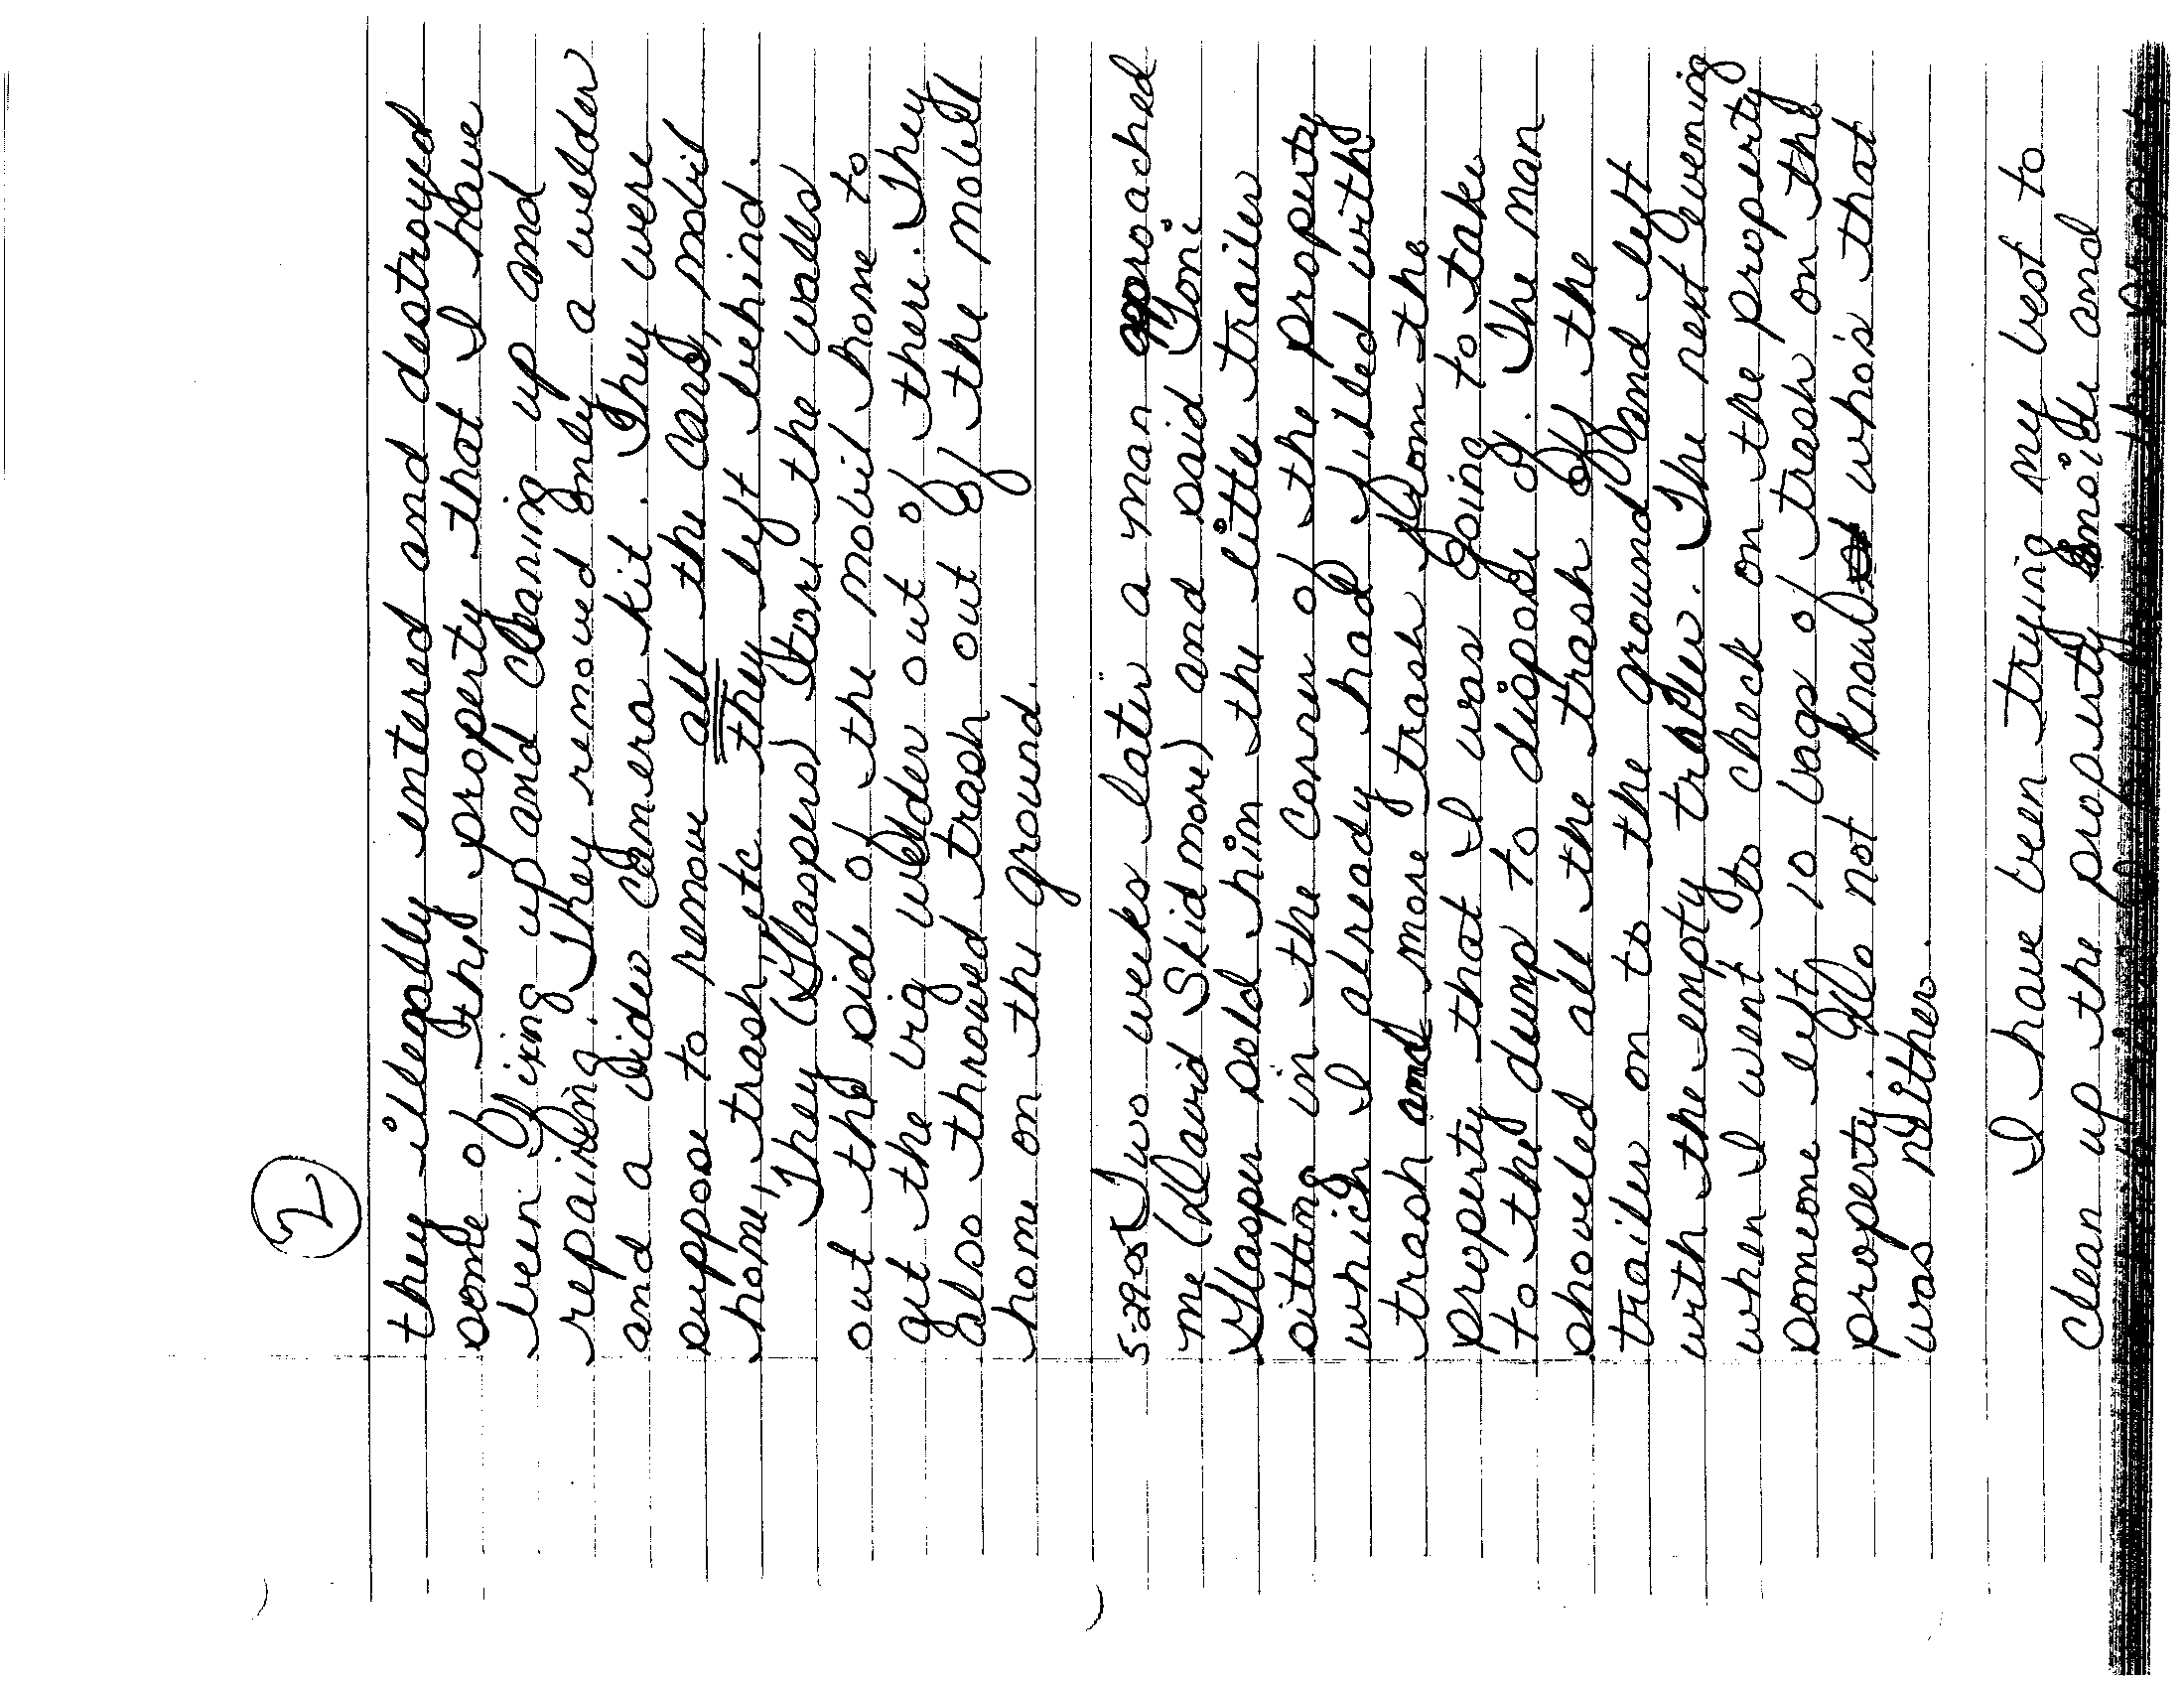 2
they illegally entered and destroyed
some of the property that I have
been fixing up and cleaning up and
repairing. They removed only a welder
and a video camera kit. They were
suppose to remove all the cars, mobil
home, trash, etc they left behind.
They (Glaspers) tore the walls
out the side of the mobil home to
get the big welder out of there. They
also throwed trash out of the mobil
home on the ground.
5-29-05 Two weeks later a man approached
me (David Skidmore) and said Toni
Glasper sold him the little trailer
sitting in the corner of the property
which I already had filled with
trash and more trash from the
property that I was going to take
to the dump to dispose of. The man
shoveled all the trash off the
trailer on to the ground and left
with the empty trailer. The next evening
when I went to check on the property
someone left 10 bags of trash on the
property. Do not know who's that
was neither.
I have been trying my best to
clean up the property inside and